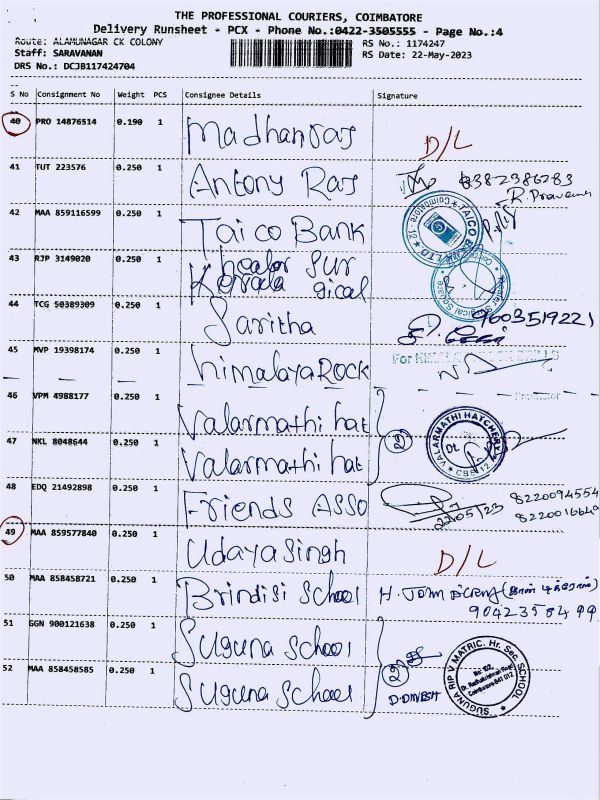 THE PROFESSIONAL COURIERS, COIMBATORE
Delivery Runsheet - PCX - Phone No.:0422-3505555 - Page No.:4
Route: ALAMUNAGAR CK COLONY RS No.: 1174247
Staff: SARAVANAN RS Date: 22-May-2023
DRS No.: DCJB117424704
S No Consignment No Weight PCS Consignee Details Signature
40 PRO 14876514 0.190 1 Madhanraj D/L
41 TUT 223576 0.250 1 Antony Raj
42 MAA 859116599 0.250 1 Taico Bank
43 RJP 3149020 0.250 1 Kerala
44 TCG 50389309 0.250 1 Saritha 9603519221
45 MVP 19398174 0.250 1 himalaya ROCK
46 VPM 4988177 0.250 1 Valarmathi hat
VALARMATHI HATCHERY
CBE-12
(2)
47 NKL 8048644 0.250 1 Valarmathi hat
48 EDQ 21492898 0.250 1 Friends ASSO 22/05/23 8220094554
49 MAA 859577840 0.250 1 Udaya Singh D/L
50 MAA 858458721 0.250 1 Brindisi School
51 GGN 900121638 0.250 1 Suguna School
(2)
SUGUNA RIP V MATRIC. Hr. Sec. SCHOOL
52 MAA 858458585 0.250 1 Suguna School